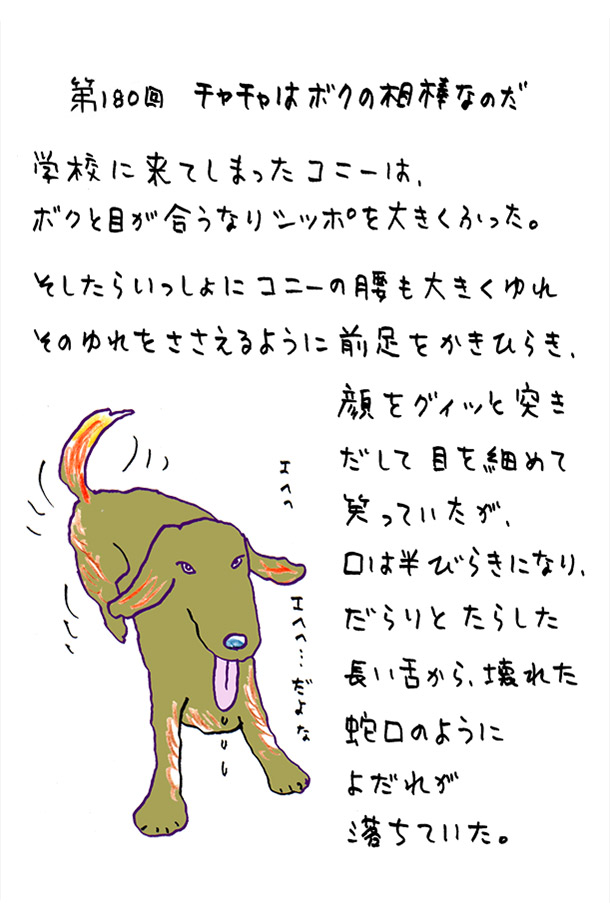 第180回 チャチャはボクの相棒なのだ
学校に来てしまったコニーは、
ボクと目が合うなりシッポを大きくふった。
そしたらいっしょにコニーの腰も大きくゆれ
そのゆれをささえるように前足をかきひらき、
顔をグィッと突き
だして目を細めて
笑っていたが、
口は半びらきになり、
だらりとたらした
長い舌から、壊れた
蛇口のように
よだれが
落ちていた。
エヘヘ
エヘヘ…だよな